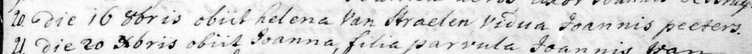 20 die 16 8bris obiit helena Van Straelen Vidua Joannis peeters.
21 die 20 Xbris obiit Joanna, filia parvula Joannis Van